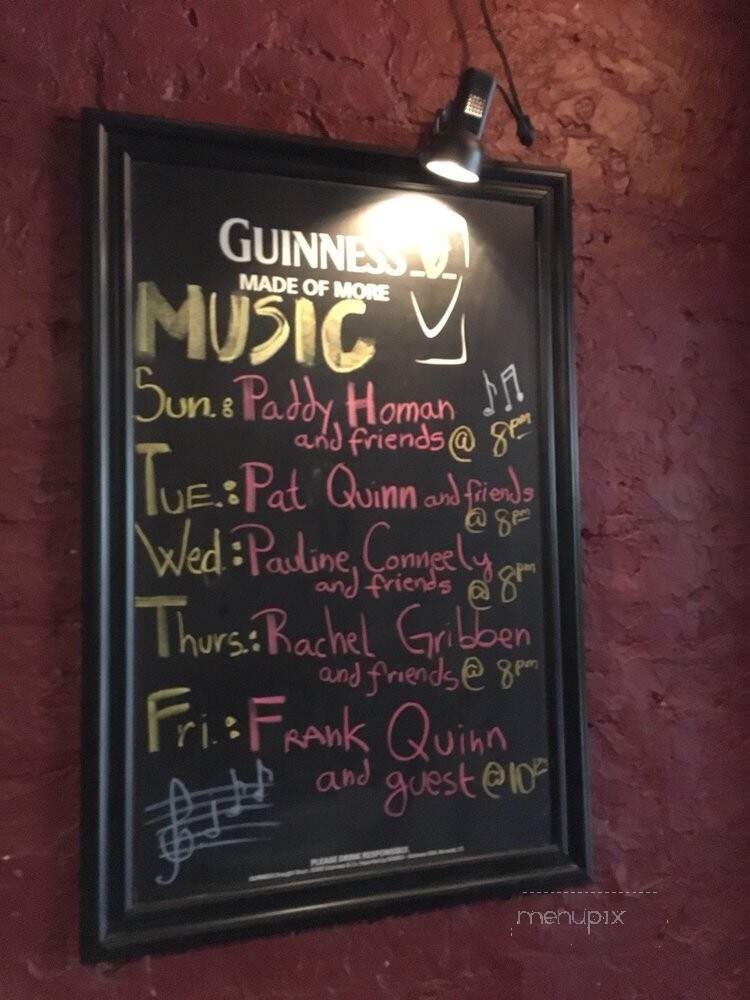 GUINNESS
MADE OF MORE
MUSIC
Sun.: Paddy Homan
and friends @ 8pm
Tue.: Pat Quinn and friends
@ 8pm
Wed.: Pauline Conneely
and friends @ 8pm
Thurs.: Rachel Gribben
and friends @ 8pm
Fri.: Frank Quinn
and guest @ 10pm
PLEASE DRINK RESPONSIBLY.
menupix